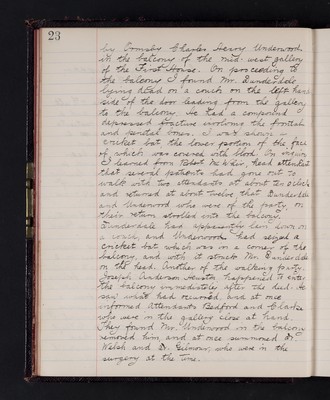 23
by Ormsby Charles Henry Underwood
in the balcony of the mid-west gallery
of the First House. On proceeding to
the balcony I found Mr. Dunderdale
lying dead on a couch on the left hand
side of the door leading from the gallery
to the balcony. He had a compound
depressed fracture involving the frontal
and parietal bones. I was shown a
cricket bat the lower portion of the face
of which was covered with blood. On inquiry
I learned from Robert head attendant
that several patients had gone out to
walk with two attendants at about ten o'clock
and returned at about twelve that Dunderdale
and Underwood who were of the party, on
their return strolled into the balcony.
Dunderdale had apparently lain down on
a couch and Underwood had seized a
cricket bat which was in a corner of the
balcony, and with it struck Mr. Dunderdale
on the head. Another of the walking party,
Joseph Anderson happened to enter
the balcony immediately after the deed. He
saw what had occurred and at once
informed Attendants Bedford and Clarke
who were in the gallery close at hand.
They found Mr. Underwood in the balcony
removed him, and at once summoned Dr.
Welsh and Dr. Gilmour, who were in the
surgery at the time.